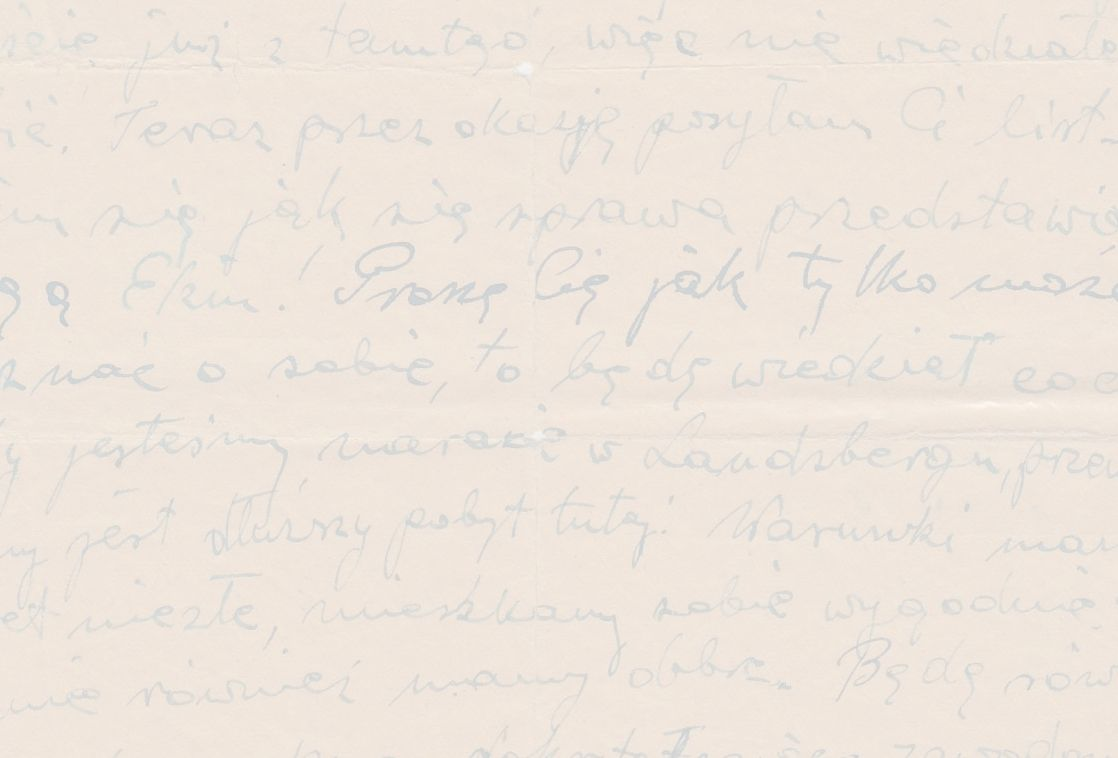 już z tamtąd, więc nie wiedziała
Teraz przez okazję posyłam Ci list
się jak się sprawa przedstawi
Ekin! Proszę Cię jak tylko moż
znać o sobie, to będę wiedział co
jesteśmy narazie w Landsbergu, prze
jest dłuższy pobyt tutaj. Warunki mam
nieźle, mieszkamy sobie wygodnie
nie również mamy dobrze. Będę rów